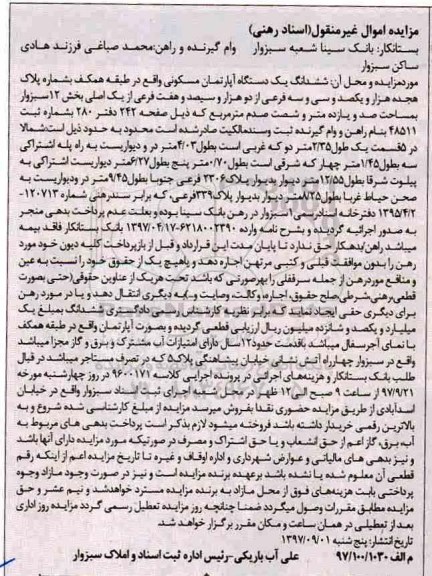 مزایده اموال غیرمنقول(اسناد رهنی)
بستانکار: بانک سینا شعبه سبزوار وام گیرنده و راهن:محمد صباغی فرزند هادی
ساکن سبزوار
موردمزایده و محل آن: ششدانگ یک دستگاه آپارتمان مسکونی واقع در طبقه همکف بشماره پلاک
هجده هزار و یکصد و سی و سه فرعی از دو هزار و سیصد و هفت فرعی از یک اصلی بخش ۱۲سبزوار
بمساحت صد و یازده متر و شصت صدم مترمربع که ذیل صفحه ۲۴۲ دفتر ۲۸۰ بشماره ثبت
۴۸۵۱۱ بنام راهن و وام گیرنده ثبت وسندمالکیت صادرشده است محدود به حدود ذیل است:شمالا
در ۵قسمت یک طول۲/۳۵متر دو که غربی است بطول۴/۰۳متر در و دیواریست به راه پله اشتراکی
سه بطول۱/۴۵متر چهار که شرقی است بطول۰/۷۰متر پنج بطول۶/۲۷متر دیواریست اشتراکی به
پیلوت شرقا بطول۱۲/۵۵متر دیوار بدیوار پلاک۲۳۰۶ فرعی جنوبا بطول۹/۴۵متر در ودیواریست به
صحن حیاط غربا بطول۸/۲۵متر دیوار بدیوار پلاک۳۳۹فرعی،که برابر سندرهنی شماره ۱۲۰۷۱۳-
۱۳۹۵/۴/۲ دفترخانه اسناد رسمی۱سبزوار در رهن بانک سینا بوده و بعلت عدم پرداخت بدهی منجر
به صدور اجرائیه گردیده و بشرح نامه وارده ۶۲۱۸۰۰۲۳۹۰-۱۳۹۷/۰۴/۱۷ بانک بستانکار فاقد بیمه
میباشد راهن/بدهکار حق ندارد تا پایان مدت این قرارداد و قبل از بازپرداخت کلیه دیون خود مورد
رهن را بدون موافقت قبلی و کتبی مرتهن اجاره دهد و یاهیچ یک از حقوق خود را نسبت به عین
و منافع موردرهن از جمله سرقفلی را بهرصورتی که باشد تحت هریک از عناوین حقوقی(حتی بصورت
قطعی،رهنی شرطی،صلح حقوق، اجاره، وکالت، وصایت و..)به دیگری انتقال دهد و یا در مورد رهن
برای دیگری حقی ایجاد نماید که برابر نظریه کارشناس رسمی دادگستری ششدانگ بمبلغ یک
میلیارد و یکصد و شانزده میلیون ریال ارزیابی قطعی گردیده و بصورت آپارتمان واقع در طبقه همکف
با نمای آجرسفال میباشد باقدمت حدود۱۲سال دارای امتیازات آب مشترک و برق و گاز مجزا میباشد
واقع در سبزوار چهارراه آتش نشانی خیابان پیشاهنگی پلاک۵ که در تصرف مستاجر میباشد در قبال
طلب بانک بستانکار و هزینه‌های اجرائی در پرونده اجرایی کلاسه ۹۶۰۰۱۷۱ در روز چهارشنبه مورخه
۹۷/۹/۲۱ از ساعت ۹ صبح الی۱۲ ظهر در محل شعبه اجرای ثبت اسناد سبزوار واقع در خیابان
اسدآبادی از طریق مزایده حضوری نقدا بفروش میرسد مزایده از مبلغ کارشناسی شده شروع و به
بالاترین قیمتی خریدار داشته باشد فروخته میشود لازم بذکر است پرداخت بدهی های مربوط به
آب،برق، گاز اعم از حق انشعاب و یا حق اشتراک و مصرف در صورتیکه مورد مزایده دارای آنها باشد
و نیز بدهی های مالیاتی و عوارض شهرداری و اداره اوقاف و غیره تا تاریخ مزایده اعم از اینکه رقم
قطعی آن معلوم شده یا نشده باشد برعهده برنده مزایده است و نیز در صورت وجود مازاد وجوه
پرداختی بابت هزینه‌های فوق از محل مازاد به برنده مزایده مسترد خواهدشد و نیم عشر و حق
مزایده مطابق مقررات وصول میگردد ضمنا چنانچه روز مزایده تعطیل رسمی گردد مزایده روز اداری
بعد از تعطیلی در همان ساعت و مکان مقرر برگزار خواهد شد.
تاریخ انتشار: پنج شنبه ۱۳۹۷/۰۹/۰۱
م الف ۹۷/۱۰۰/۱۰۳۰ علی آب باریکی-رئیس اداره ثبت اسناد و املاک سبزوار